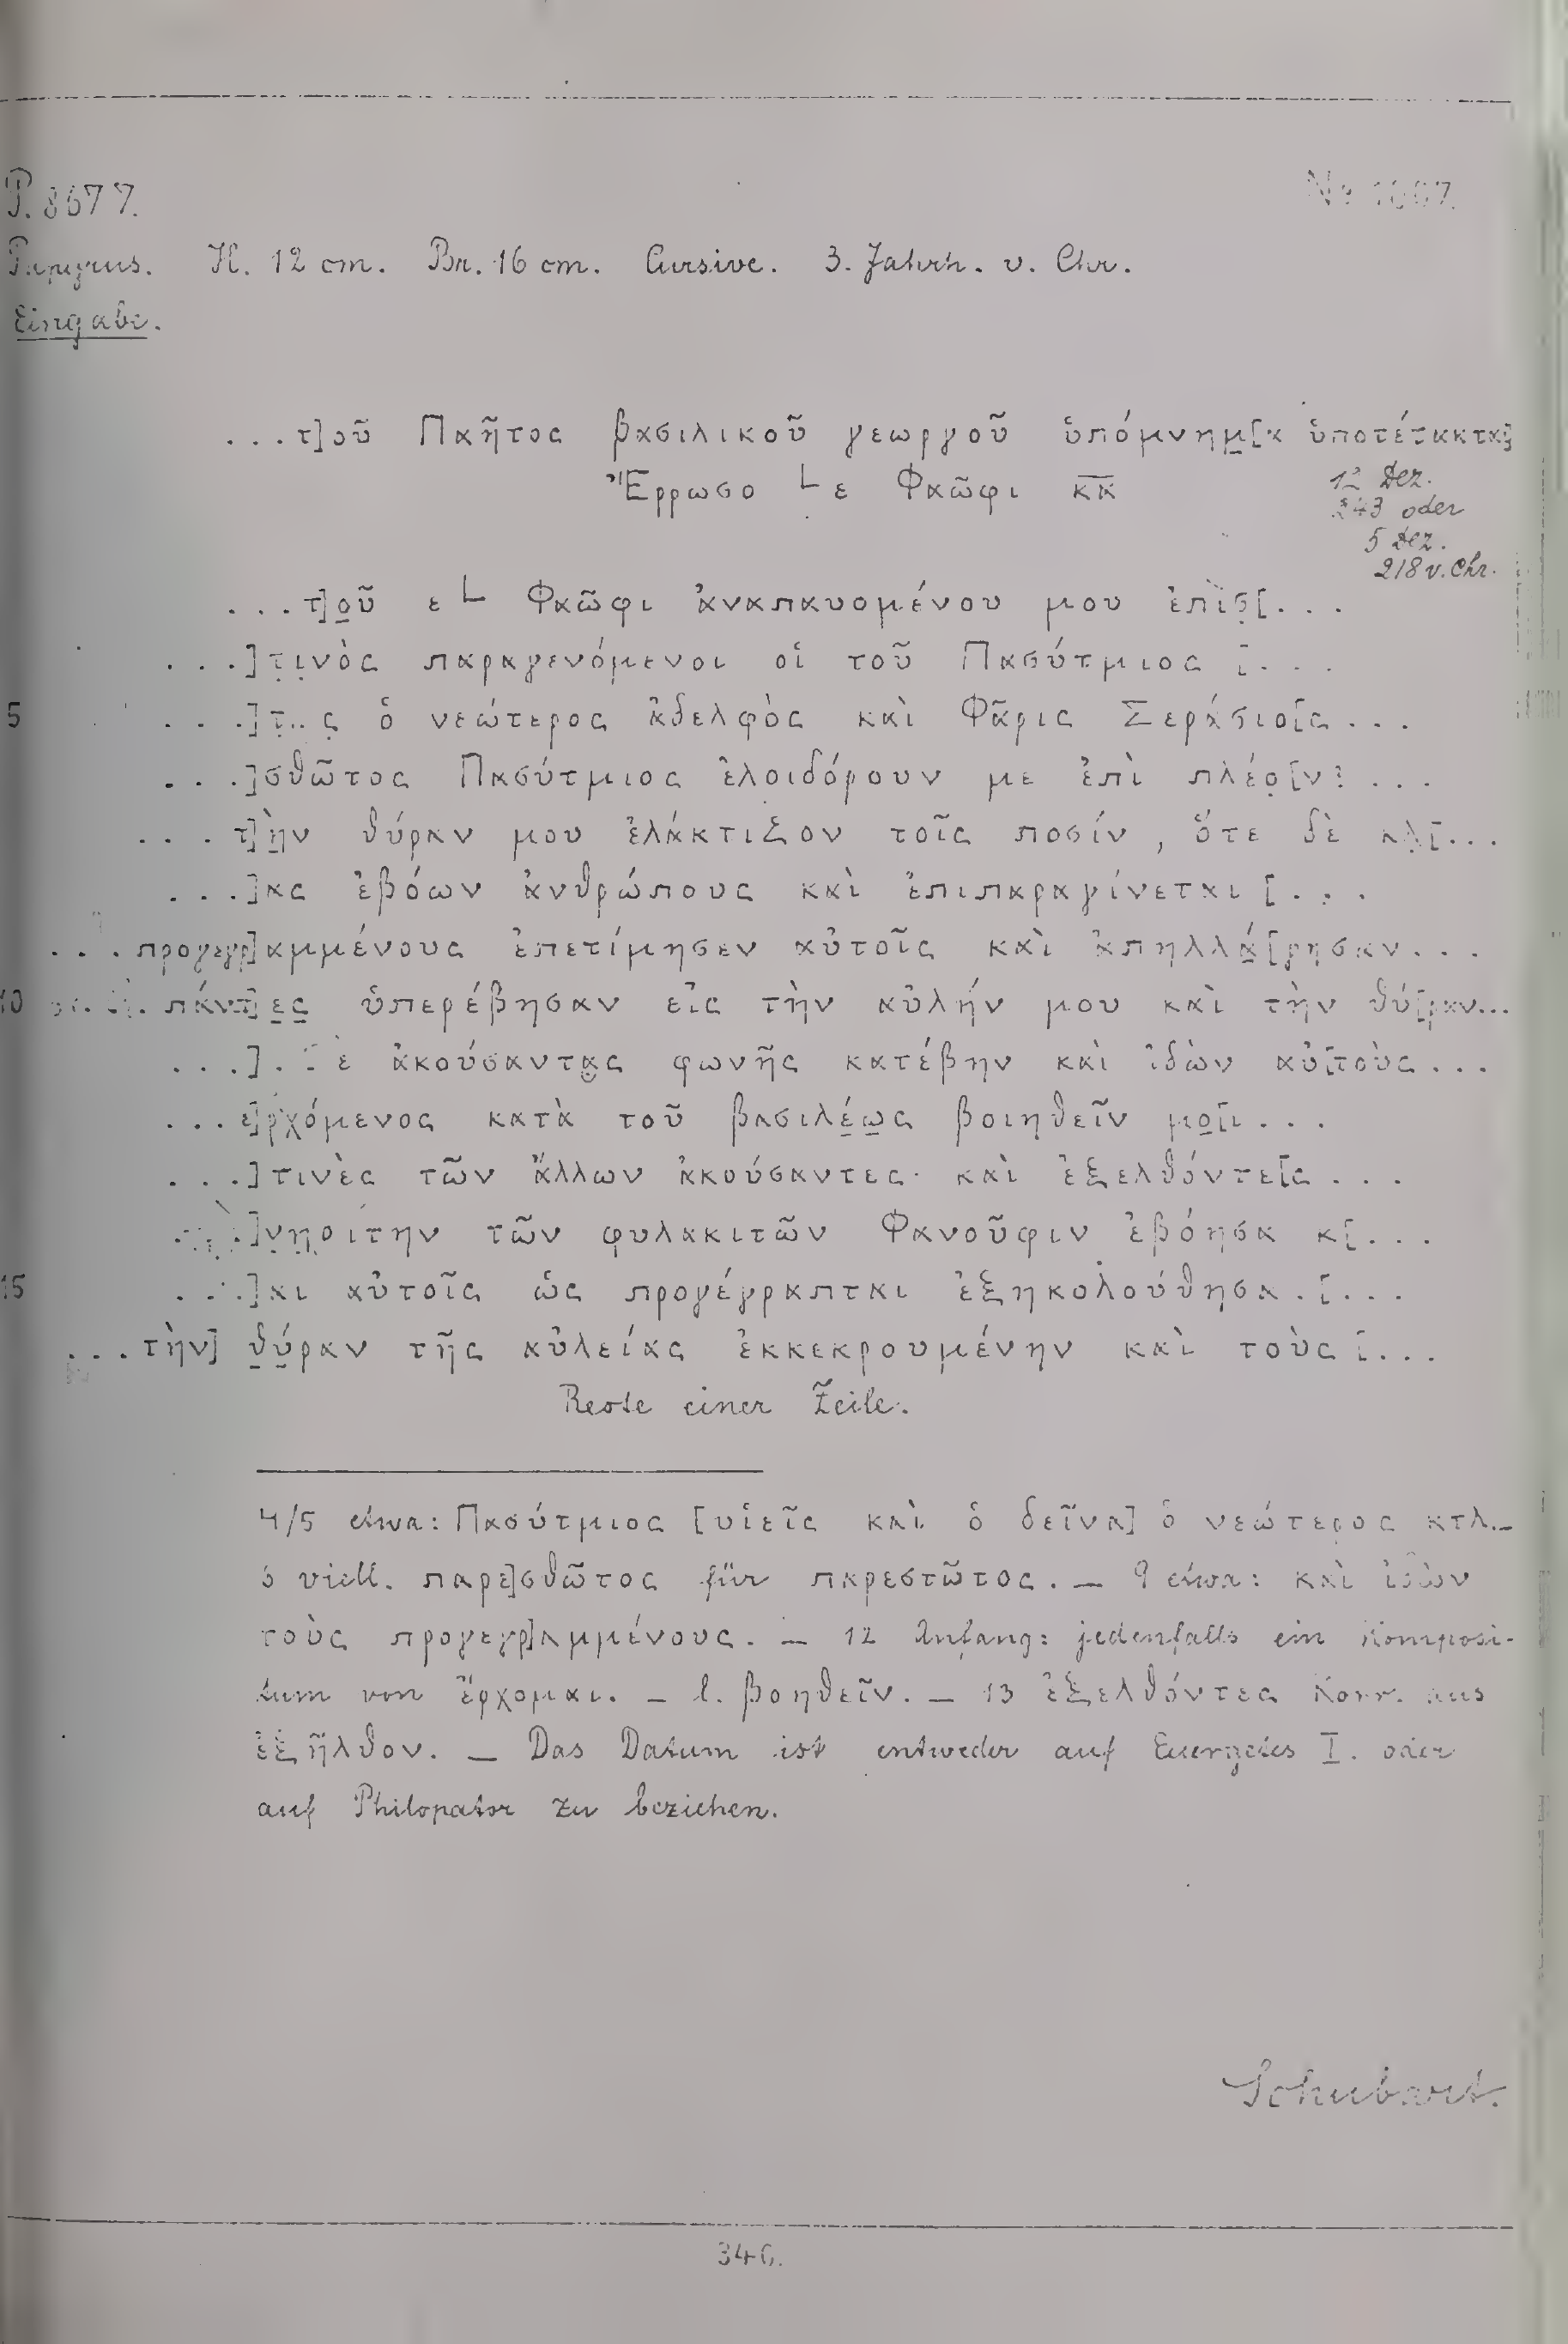 P. 8677. Nr 1007.
Papyrus. H. 12 cm. Br. 16 cm. Cursive. 3. Jahrh. v. Chr.
Eingabe.
...τ]οῦ Παῆτος βασιλικοῦ γεωργοῦ ὑπόμνημ̣[α ὑποτέτακται]
Ἔρρωσο └ ε Φαῶφι κ̅α̅
12 Dez.
243 oder
5 Dez.
218 v. Chr.
...τ]ο̣ῦ ε └ Φαῶφι ἀναπαυομένου μου ἐπὶσ̣[...
...]τ̣ι̣νὸς παραγενόμενοι οἱ τοῦ Πασύτμιος [...
5 ...]τ̣..ς̣ ὁ νεώτερος ἀδελφὸς καὶ Φᾶρις Σεράσιο[ς...
...]σθῶτος Πασύτμιος ἐλοιδόρουν με ἐπὶ πλέο̣[ν]...
...τ]ὴ̣ν θύραν μου ἐλάκτιζον τοῖς ποσίν, ὅτε δὲ [...
...]ας ἐβόων ἀνθρώπους καὶ ἐπιπαραγίνεται [...
...προγεγρ]αμμένους ἐπετίμησεν αὐτοῖς καὶ ἀπηλλά̣[γησαν...
10 πάντ]ε̣ς̣ ὑπερέβησαν εἰς τὴν αὐλήν μου καὶ τὴν θύ[ραν...
...]. ε ἀκούσαντα̣ς φωνῆς κατέβην καὶ ἰδὼν αὐ[τοὺς...
...ε]ρχόμενος κατὰ τοῦ βασιλέ̣ω̣ς βοιηθεῖν μο̣[ι...
...]τινὲς τῶν ἄλλων ἀκούσαντες καὶ ἐξελθόντε[ς...
]ν̣η̣ο̣ίτην τῶν φυλακιτῶν Φανοῦφιν ἐβόησα κ[...
15 ...]αι αὐτοῖς ὡς προγέγραπται ἐξηκολούθησα.[...
...τὴν] θ̣ύ̣ραν τῆς αὐλείας ἐκκεκρουμένην καὶ τοὺς [...
Reste einer Zeile.
4/5 etwa: Πασύτμιος [υἱεῖς καὶ ὁ δεῖνα] ὁ νεώτερος κτλ. –
6 viell. παρε]σθῶτος für παρεστῶτος. – 9 etwa: καὶ ἰδὼν
τοὺς προγεγρ]αμμένους. – 12 Anfang: jedenfalls ein Komposi-
tum von ἔρχομαι. – l. βοηθεῖν. – 13 ἐξελθόντες Korr. aus
ἐξῆλθον. – Das Datum ist entweder auf Euergetes I. oder
auf Philopator zu beziehen.
Schubart.
346.